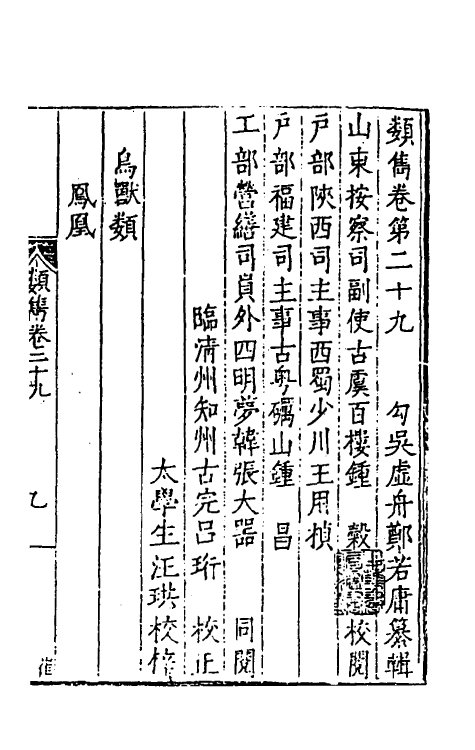 類雋卷第二十九 勾吳虛舟鄭若庸纂輯
山東按察司副使古虞百樓鍾 穀 校閱
戸部陝西司主事西蜀少川王用楨
戸部福建司主事古粵礪山鍾 昌
工部營繕司員外四明夢韓張大器 同閱
臨清州知州古完呂珩 校正
太學生汪珙校梓
鳥獸類
鳳凰
類雋卷二十九